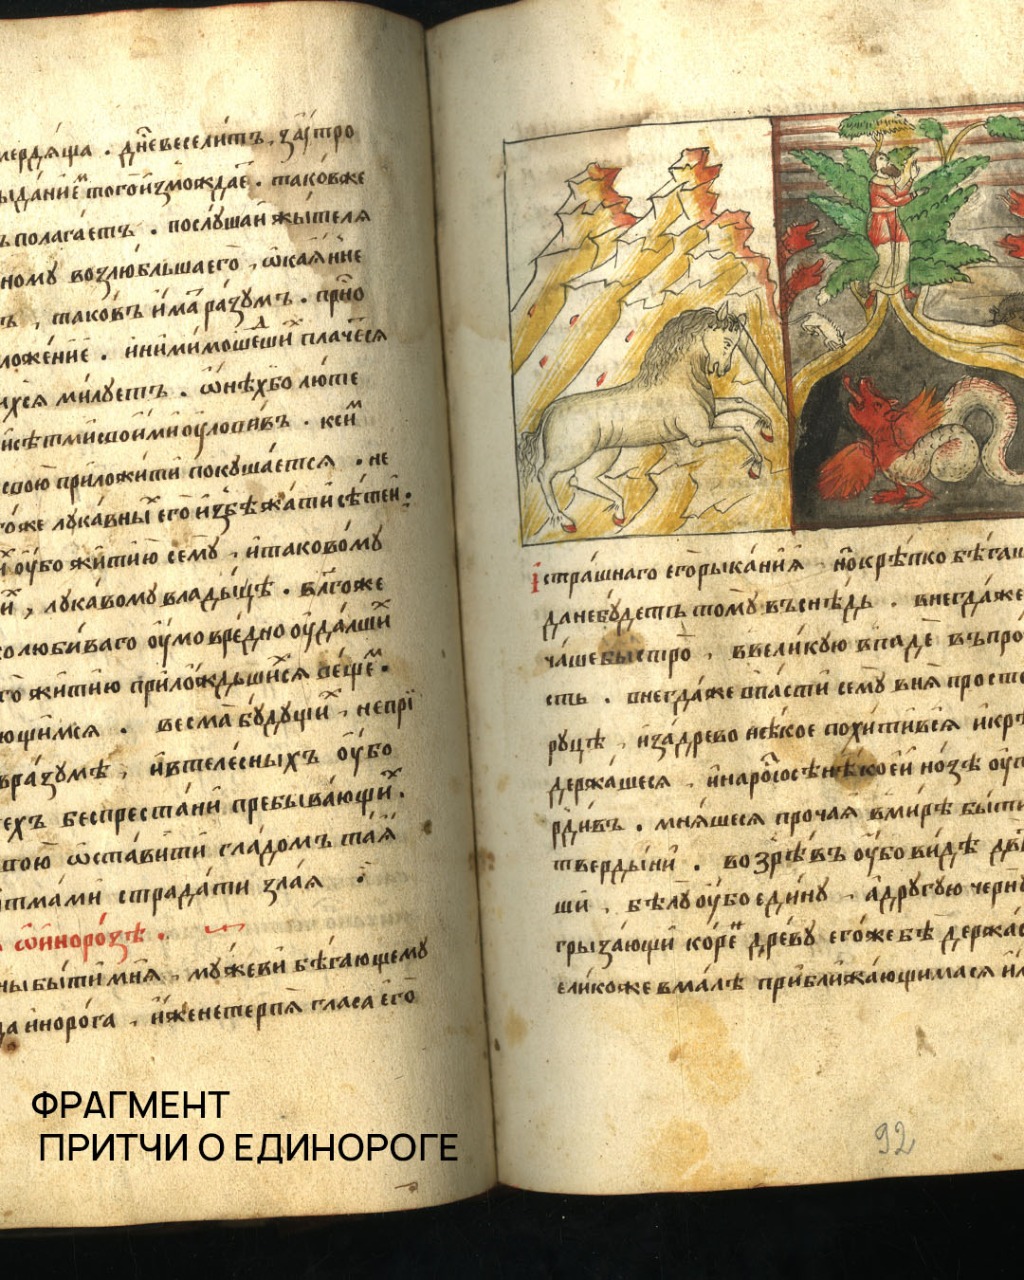 мердѧ́ща . дн҃е веселитъ, за́стро
ыда́нїе тогоизможда́е . таковже
полагаетъ . послу́шай жи́телѧ
ному возлю́бльшаего , ѡ҆кая́нне
таковъ и҆ма ра́зумъ . при́сно
ложе́нїе . инимимоше́шїй плаче́сѧ
ихсѧ ми́луетъ . ѡ҆ни́хбо лю́те
и҆сѣтмисвои́миоу҆лови́въ . к си́м
свою̀ приложи́ти покуша́етсѧ . не
го́же лука́вный его̀ и҆збѣжа́ти сѣ́тей .
оу҆́бо житїю̀ сему̀ , и҆таково́му
лука́вому влады́цѣ . бл҃гоже
олюби́ваго оу҆мовре́дно оу҆да́лшїй
го житїю̀ прило́ждьшийсѧ ве́щем .
ющимсѧ . весма̀ бу́дущїй , непрї
вра́зумѣ , и҆втеле́сныхъ оу҆́бо
те́хъ беспреста́ни пребыва́ющїй .
бою̀ ѡ҆ста́вити гла́домъ та́ѧ
тма́ми страда́ти зла́ѧ .
ѡ҆и҆норо́зѣ .
ныбы́тимнѧ̀ , му́жеви бѣ́гающему
ца и҆норо́га , и҆́женетерпѧ̀ гла́са е҆го̀
і҆стра́шнаго е҆го̀рыка́нїѧ , но́крѣ́пко бѣ́гаш
данебу́детъ тому̀ въснѣ́дь . внегда́же
ча́шебы́стро , ввели́кую впаде́ въпро́
сть . внегда́же впа́сти сему̀ внѧ̀ просте
руцѣ , и҆задре́во нѣ́кое похи́тивсѧ и҆крѣ
держа́шесѧ , и҆на нѣ́коей но́зѣ оу҆т
рди́въ . мнѧ́шесѧ про́чаѧ вми́рѣ бы́ти
тверды́ни . возрѣ́въ оу҆́бо ви́дѣ двѣ
ши , бѣ́лу оу҆́бо еди́ну , а҆другу́ю черну
грыза́ющи ко́рен дре́ву е҆го́жебѣ держа́с
ели́коже вма́лѣ приближа́ющимасѧ и҆м
92
ФРАГМЕНТ
ПРИТЧИ О ЕДИНОРОГЕ